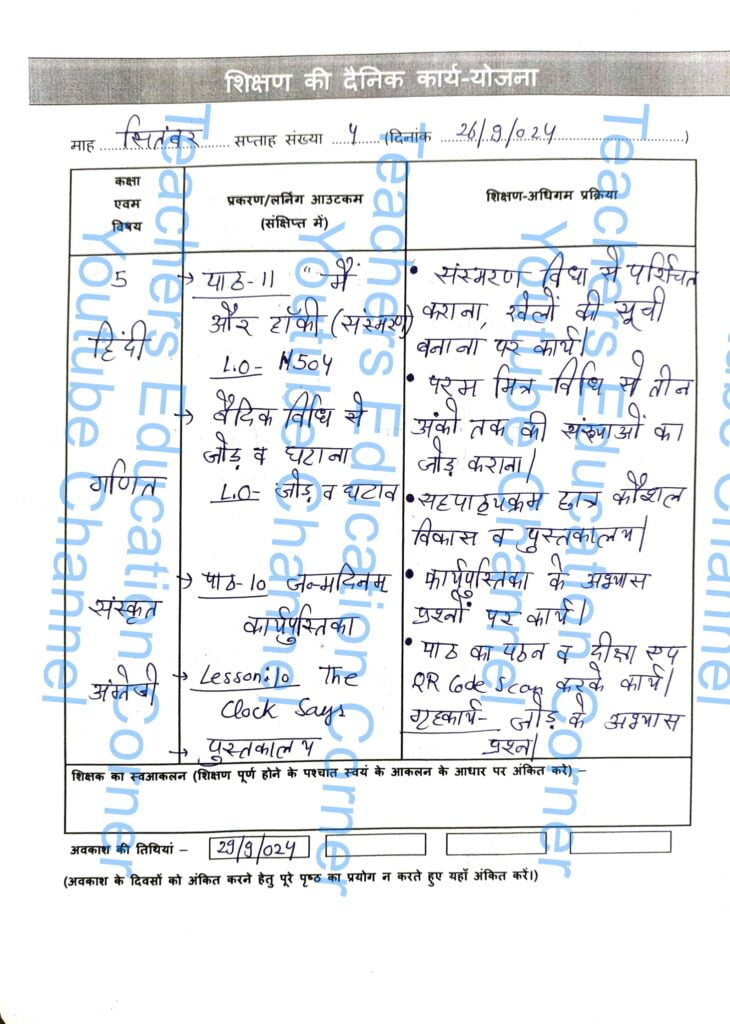 शिक्षण की दैनिक कार्य-योजना
माह सितंबर सप्ताह संख्या 4 (दिनांक 26/9/024)
कक्षा एवम विषय
प्रकरण/लर्निंग आउटकम (संक्षिप्त में)
शिक्षण-अधिगम प्रक्रिया
5
हिंदी
→ पाठ-11 "मैं
और हॉकी (संस्मरण)
L.O- H504
→ वैदिक विधि से
जोड़ व घटाना
गणित
L.O- जोड़ व घटाव
→ पाठ-10 जन्मदिनम्
संस्कृत
कार्यपुस्तिका
अंग्रेजी
→ Lesson:10 The
Clock Says
→ पुस्तकालय
• संस्मरण विधा से परिचित
कराना, खेलों की सूची
बनाना पर कार्य।
• परम मित्र विधि से तीन
अंको तक की संख्याओं का
जोड़ कराना।
• सहपाठ्यक्रम छात्र कौशल
विकास व पुस्तकालय।
• कार्यपुस्तिका के अभ्यास
प्रश्नों पर कार्य।
• पाठ का पठन व दीक्षा एप
QR Code Scan करके कार्य।
गृहकार्य- जोड़ के अभ्यास
प्रश्न।
शिक्षक का स्वआकलन (शिक्षण पूर्ण होने के पश्चात स्वयं के आकलन के आधार पर अंकित करें) –
अवकाश की तिथियां – 29/9/024
(अवकाश के दिवसों को अंकित करने हेतु पूरे पृष्ठ का प्रयोग न करते हुए यहाँ अंकित करें।)
Teachers Education Corner
Youtube Channel
Teachers Education Corner
Youtube Channel
Teachers Education Corner
Youtube Channel